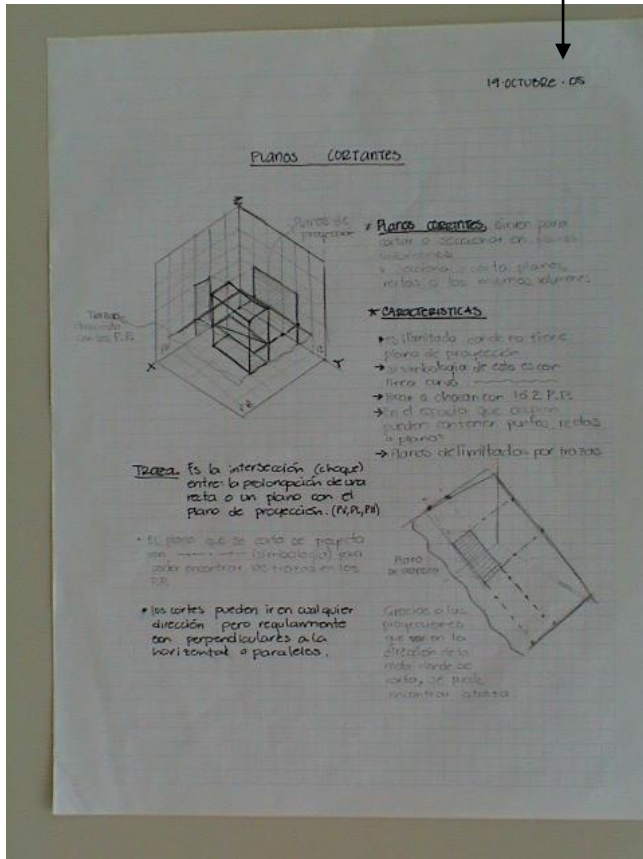 19·OCTUBRE·05
PLANOS CORTANTES
Z
PLANOS DE
PROYECCIÓN
Trazas,
chocando
con los P.P.
X
Y
* PLANOS CORTANTES, sirven para
cortar o seccionar en
volúmenes
* secciona o corta planos,
rectas o los mismos volúmenes
* CARACTERISTICAS
es ilimitado donde no tiene
plano de proyección
→ simbología de esto es con
línea curva
→ tocar o chocan con 1 ó 2 P.P.
→ En el espacio que ocupan
pueden contener puntos, rectas
o planos
→ Planos delimitados por trazas
Traza. Es la intersección (choque)
entre: la prolongación de una
recta o un plano con el
plano de proyección. (PV, PL, PH)
• EL plano que se corta se proyecta
con (simbología) para
poder encontrar las trazas en los
P.P.
• los cortes pueden ir en cualquier
dirección pero regularmente
son perpendiculares a la
horizontal o paralelos.
Plano
Gracias a las
proyecciones
que van en la
dirección de la
recta donde se
corta, se puede
encontrar